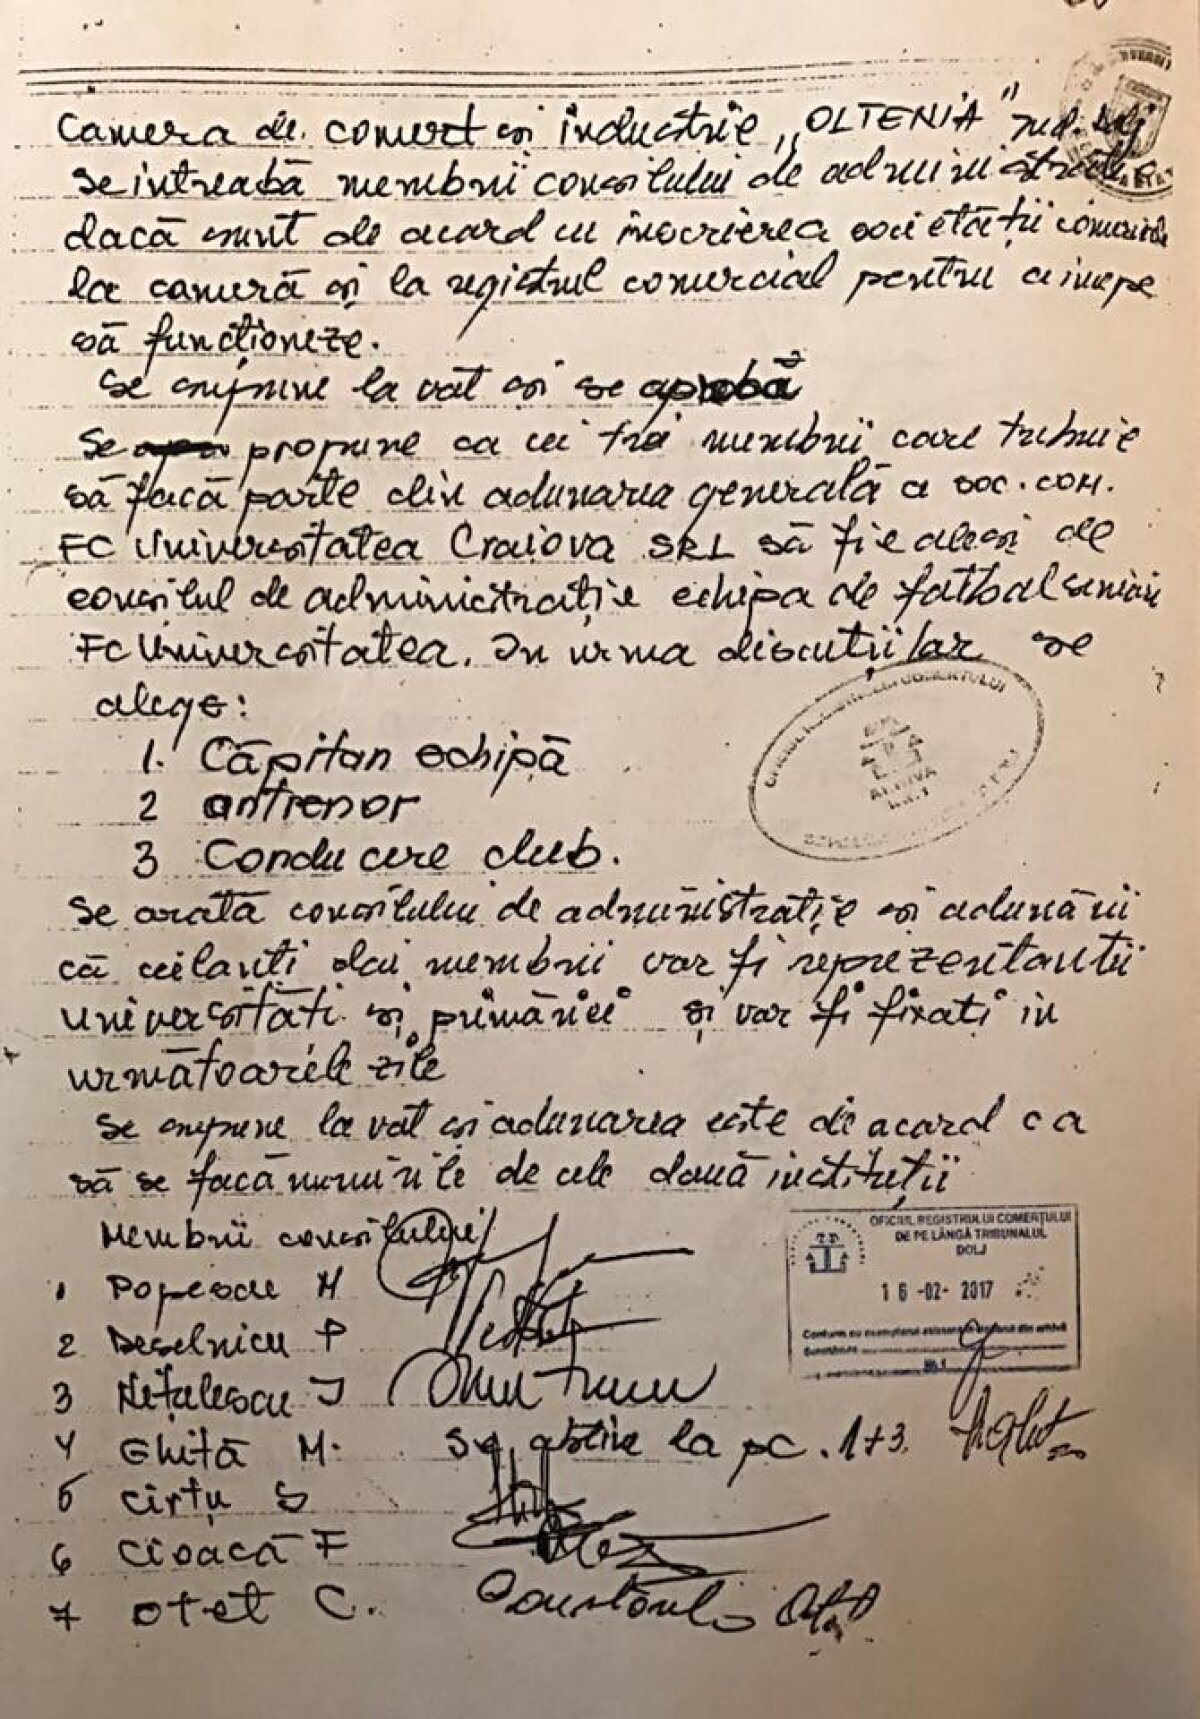 Camera de comert și industrie „OLTENIA" jud. Dolj
Se intreabă membrii consiliului de administrație
dacă sunt de acord cu inscrierea societății comerciale
la cameră și la registrul comercial pentru a incepe
să funcționeze.
Se supune la vot și se aprobă
Se propune ca cei trei membrii care trebuie
să facă parte din adunarea generală a soc. com.
FC Universitatea Craiova SRL să fie aleși de
consilul de administrație echipa de fotbal seniori
FC Universitatea. In urma discuțiilor se
alege:
1. Căpitan echipă
2 antrenor
3 Conducere club.
Se arată consiliului de administrație și adunării
că ceilanti doi membrii vor fi reprezentantii
Universității și primăriei și vor fi fixați in
următoarele zile
Se supune la vot și adunarea este de acord ca
să se facă numirile de cele două instituții
Membrii consiliului
1 Popescu M
2 Deselnicu P
3 Nețulescu I
4 Ghiță M. Se abtine la pc. 1+3.
5 Cirțu S
6 Cioacă F
7 Otet C.
ARHIVA
OFICIUL REGISTRULUI COMERȚULUI
DE PE LÂNGĂ TRIBUNALUL
DOLJ
16 -02- 2017
Conform cu exemplarul din arhivă